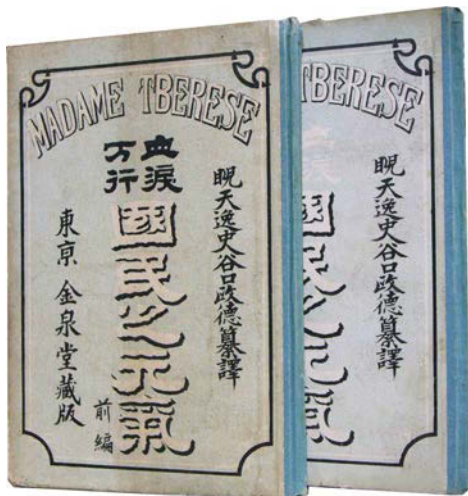 MADAME TBERESE
睨天逸史谷口政德纂譯
血淚
万行
國民之元氣
前編
東亰 金泉堂藏版
TBERESE
睨天逸史谷口政德纂譯
血淚
國民之元氣